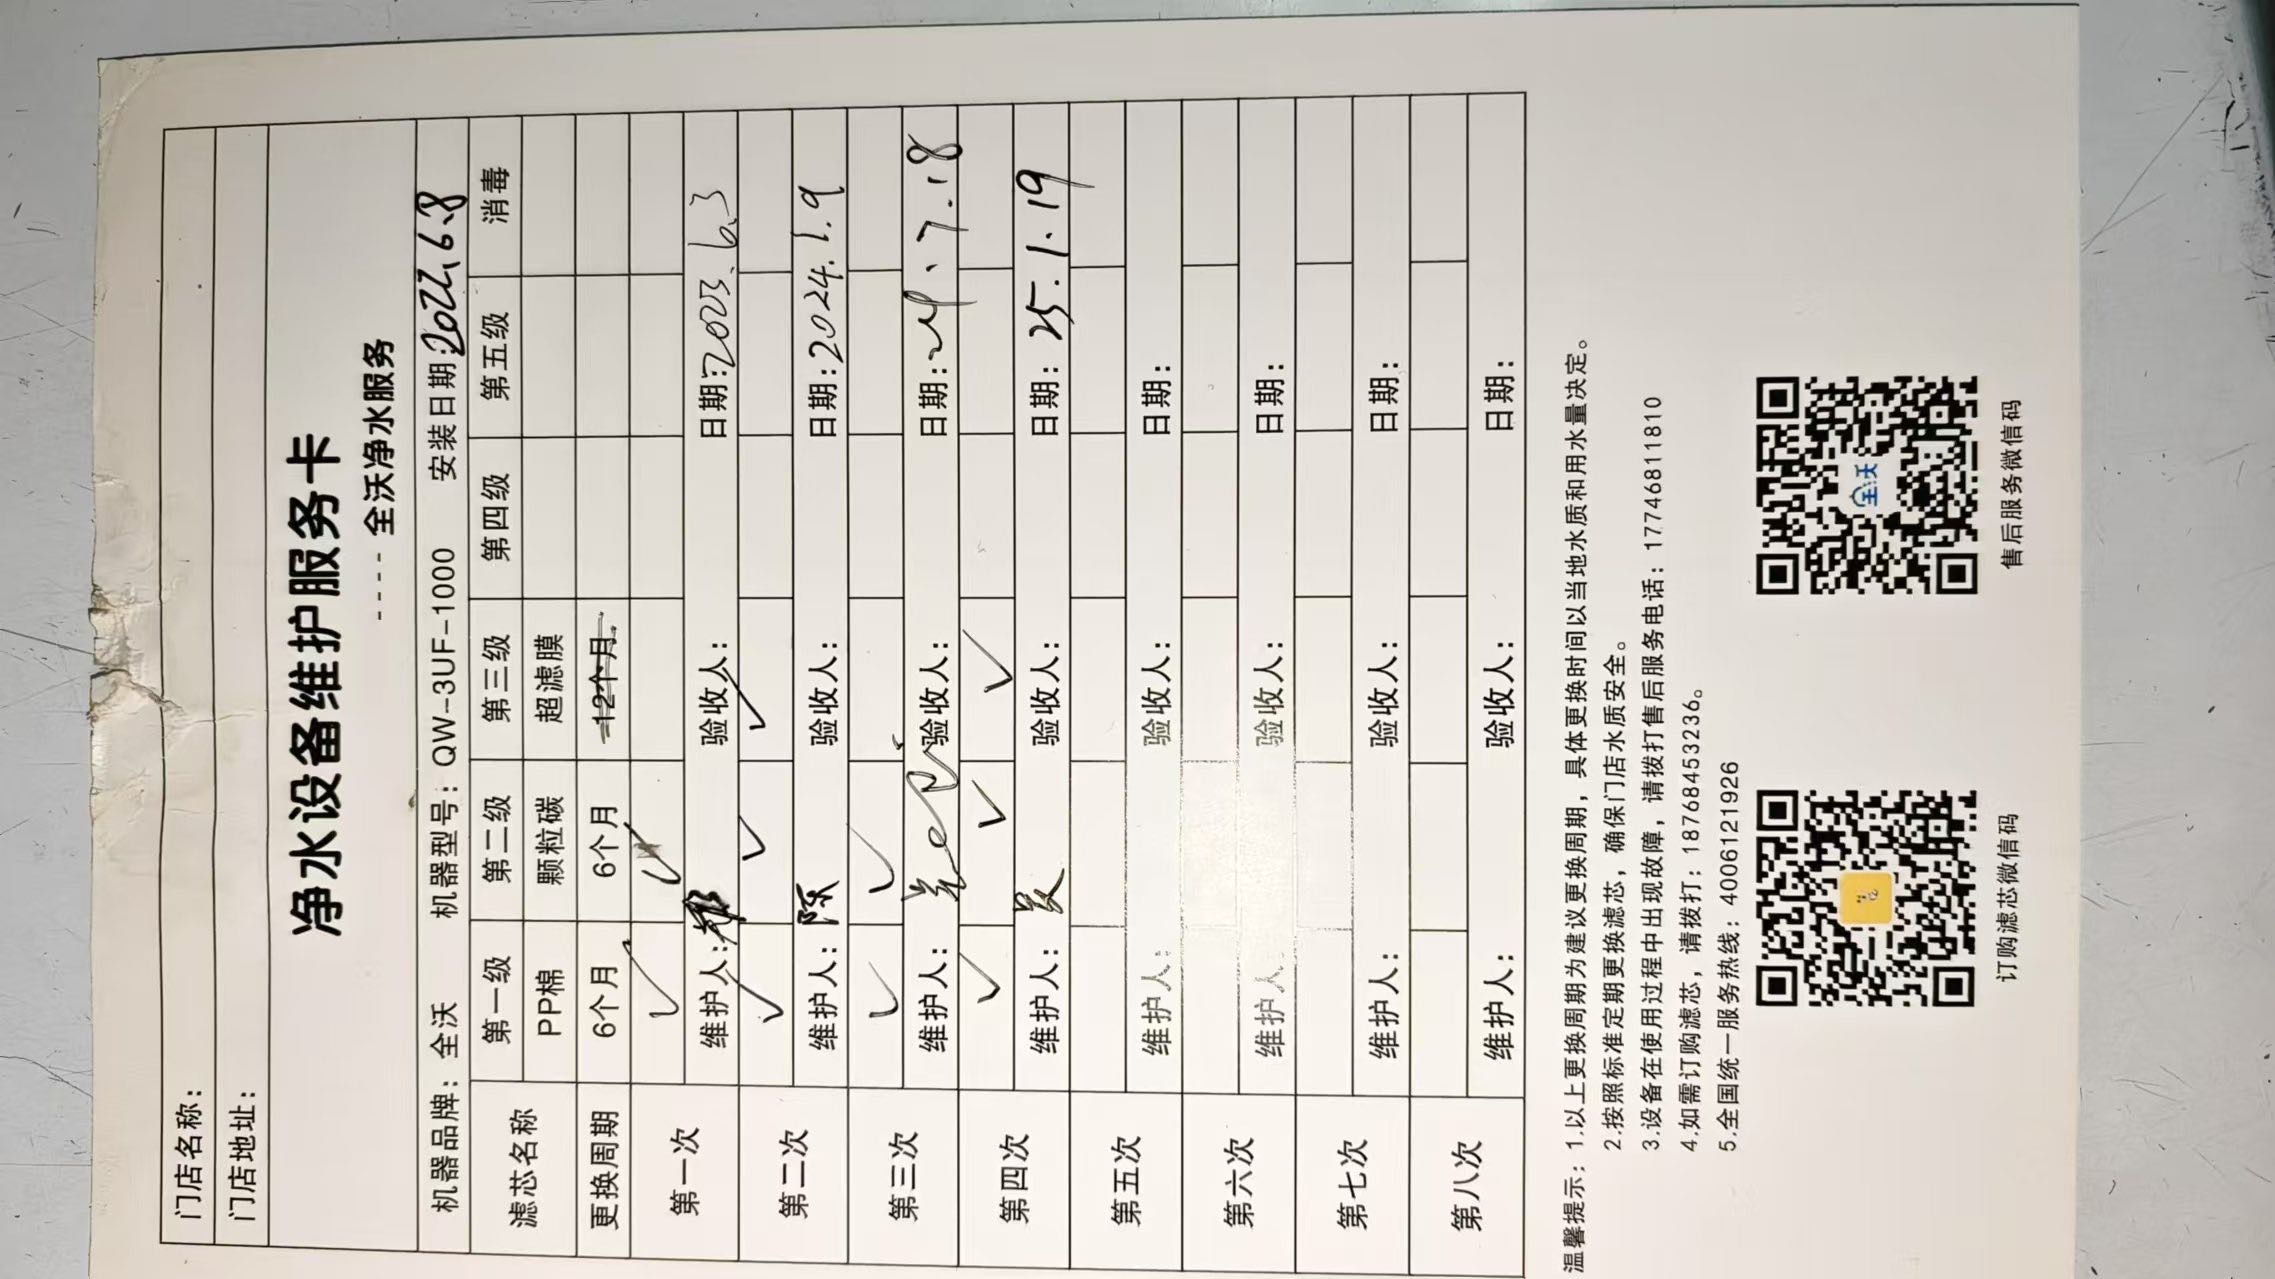 门店名称：
门店地址：
净水设备维护服务卡
---- 全沃净水服务
机器品牌：全沃 机器型号：QW-3UF-1000 安装日期：2022.6.8
滤芯名称 第一级 第二级 第三级 第四级 第五级 消毒
PP棉 颗粒炭 超滤膜
更换周期 6个月 6个月 12个月
第一次 ✓ ✓
维护人： 验收人： 日期：2023.6.3
第二次 ✓ ✓ ✓
维护人：陈 验收人： 日期：2024.1.9
第三次 ✓ ✓
维护人： 验收人： 日期：24.7.18
第四次 ✓ ✓ ✓
维护人： 验收人： 日期：25.1.19
第五次
维护人： 验收人： 日期：
第六次
维护人： 验收人： 日期：
第七次
维护人： 验收人： 日期：
第八次
维护人： 验收人： 日期：
温馨提示：1.以上更换周期为建议更换周期，具体更换时间以当地水质和用水量决定。
2.按照标准定期更换滤芯，确保门店水质安全。
3.设备在使用过程中出现故障，请拨打售后服务电话：17746811810
4.如需订购滤芯，请拨打：18768453236。
5.全国统一服务热线：4006121926
全沃
订购滤芯微信码 售后服务微信码